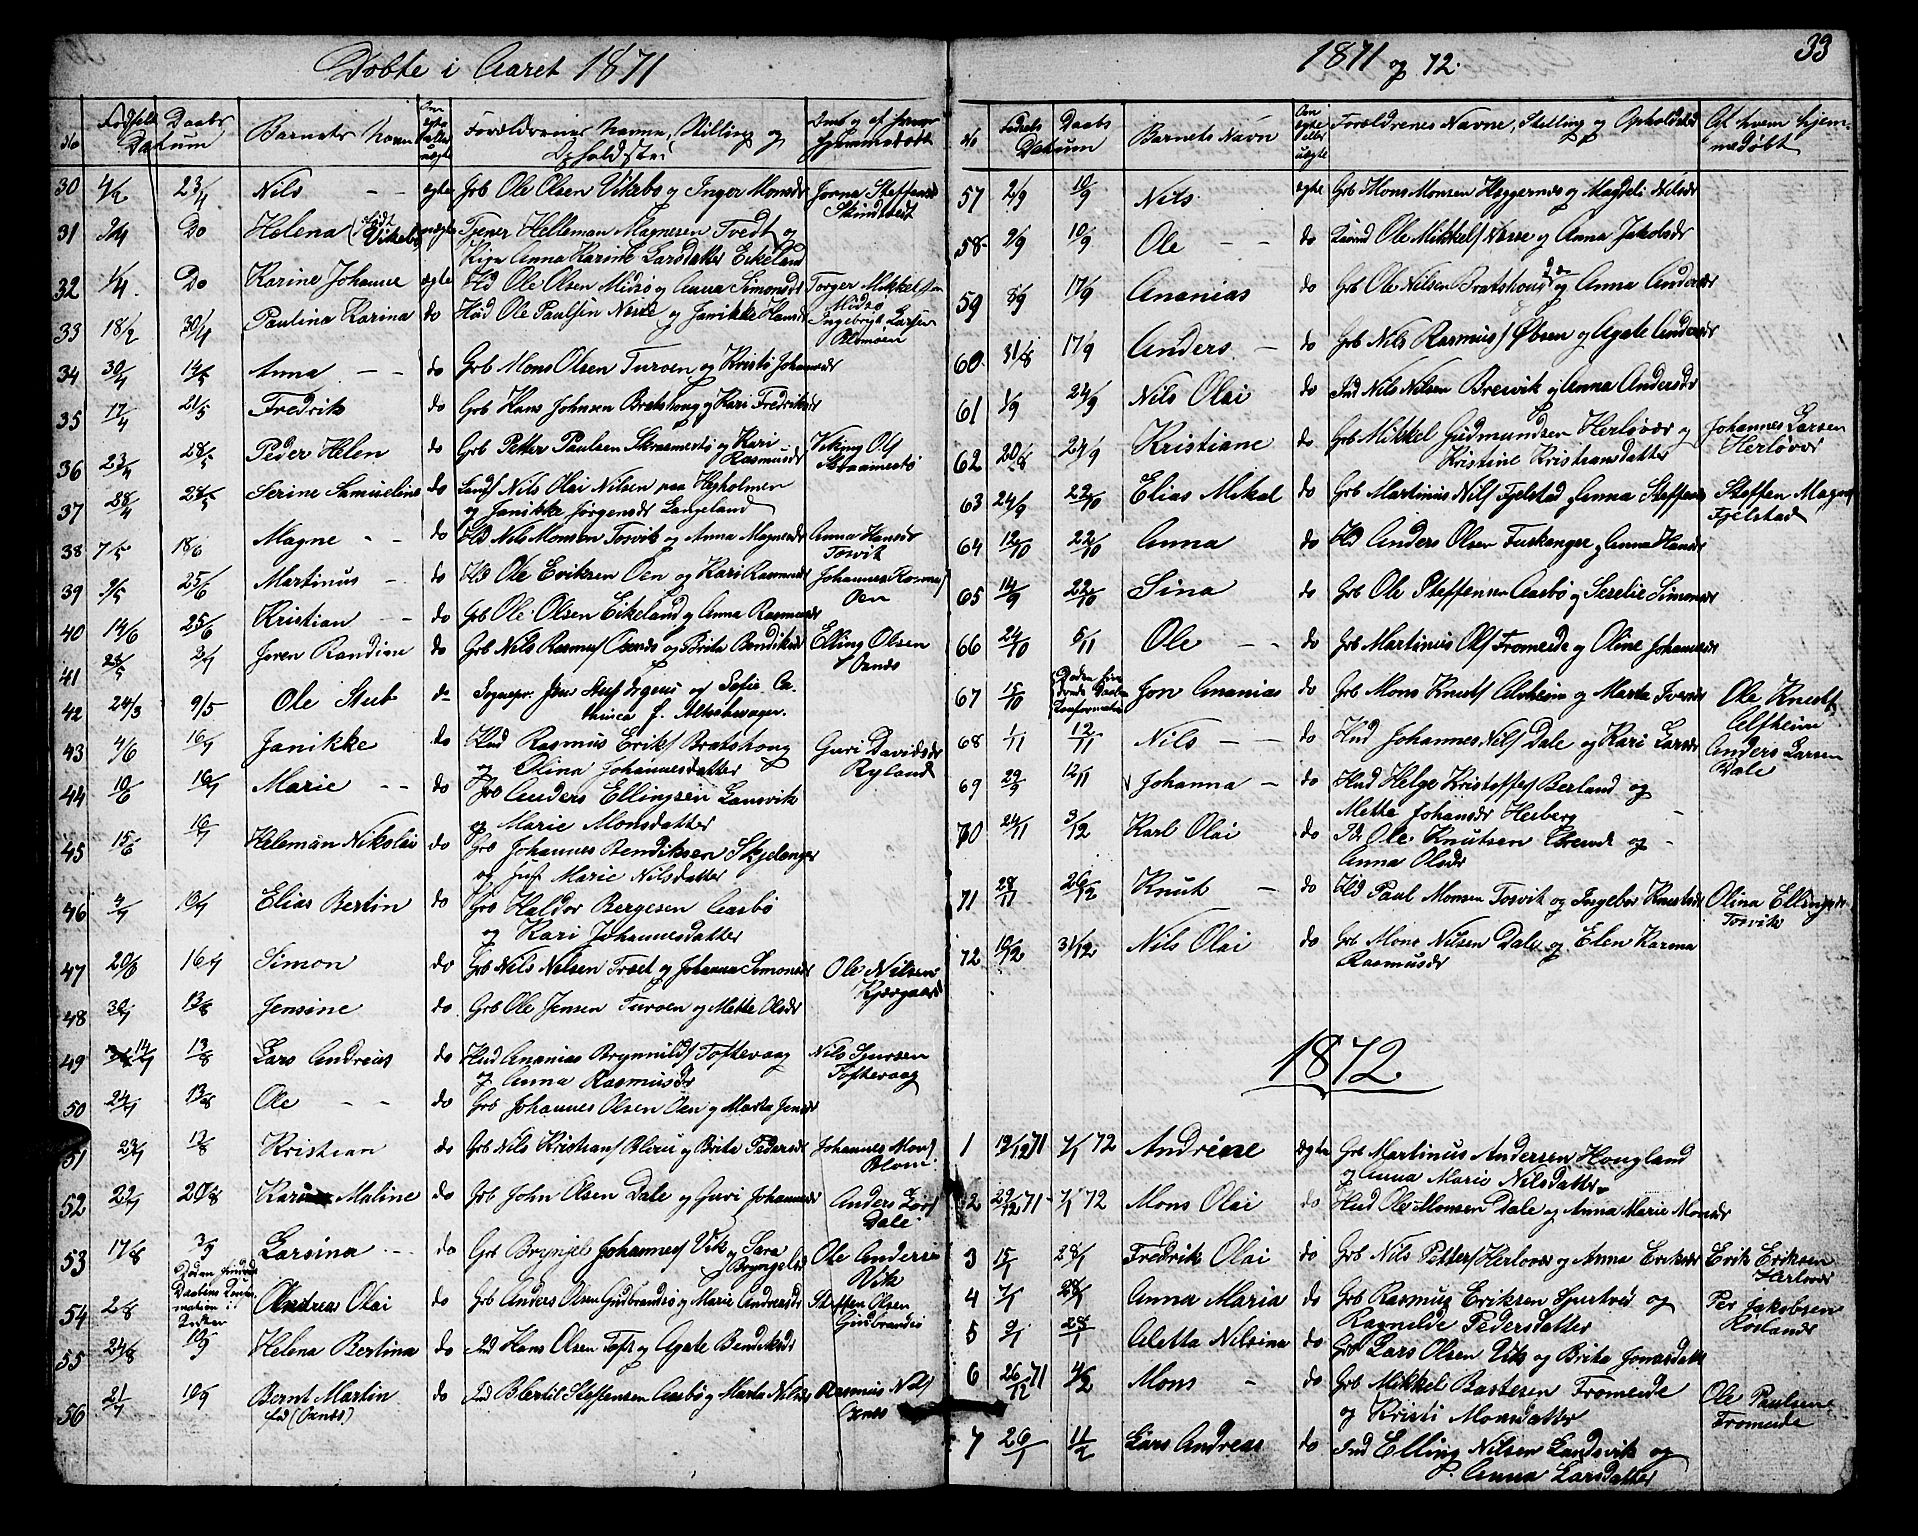 Døbte i Aaret 1871
No Fødsels Daabs Datum Barnets Navn Om ægte eller uægte Forældrenes Navne, Stilling og Opholdssted Om og af hvem hjemmedøbt
30 4/2 23/4 Nils — ægte Grb Ole Olsen Vikebø og Inger Monsdr Jorna Steffens
31 Do Helena (født Vikebø) uægte Tjener Helleman Magnesen Tvedt og
Pige Anna Karine Larsdatter Eikeland
32 1/4 Do Karine Johanne ægte Hd Ole Olsen Midsø og Anna Simonsdr Torger Mikkelsen
Midsø
33 18/2 30/4 Paulina Karina do Hud Ole Paulsen Nesse og Janikke Hansdr Ingebrigt Larsen
34 30/4 14/5 Anna — do Grb Mons Olsen Turøen og Kristi Johannesdr
35 17/4 21/5 Fredrik do Grb Hans Johnsen Bratshoug og Kari Fredriksdr
36 23/4 28/5 Peder Helen do Grb Petter Paulsen Skraamestø og Kari Viking Ols
Rasmusdr Skraamestø
37 28/4 28/5 Serine Samueline do Lands Nils Olai Nilsen paa Hegholmen
og Janikke Jørgensdr Langeland
38 7/5 18/6 Magne — do Hd Nils Monsen Tosvik og Anna Magnesdr Anna Hansdr
Tosvik
39 9/5 25/6 Martinus — do Hd Ole Eriksen Oen og Kari Rasmusdr Johannes Rasmus
Oen
40 14/6 25/6 Kristian — do Grb Ole Olsen Eikeland og Anna Rasmusdr
41 28/5 2/7 Joren Randine do Grb Nils Rasmus Oenes og Brita Bendiksdr Elling Olsen
Oenes
42 24/3 9/5 Ole Stub do Sognepr. Jens Stub Irgens og Sofie Ca-
thinca f. Altenhwager.
43 4/6 16/7 Janikke do Hud Rasmus Eriks Bratshoug Guri Davidsdr
og Olina Johannesdatter Ryland
44 10/6 16/7 Marie — do Grb Anders Ellingsen Landsvik
og Marie Monsdatter
45 15/6 16/7 Heleman Nikolai do Grb Johannes Bendiksen Skjelanger
og Marie Nilsdatter
46 4/7 16/7 Elias Bertin do Grb Haldor Bergesen Aasbø
og Kari Johannesdatter
47 20/6 16/7 Simon do Grb Nils Nilsen Træt og Johanna Simonsdr Ole Nilsen
Kjærgaard
48 30/7 13/8 Jensine do Grb Ole Jensen Turøen og Mette Olsdr
49 14/7 13/8 Lars Andreas do Hud Ananias Brynnilds Toftevaag Nils Sjursen
og Anna Rasmusdr Toftevaag
50 24/7 13/8 Ole — do Grb Johannes Olsen Oen og Marta Jensdr
51 23/7 13/8 Kristian do Grb Nils Kristians Blom og Brita Pedersdr Johannes Mons
Blom
52 22/7 20/8 Karina Maline do Grb John Olsen Dale og Guri Johannesdr Anders Lars
Dale
53 17/8 3/9 Larsina — do Grb Brynjel Johannes Vik og Sara Ole Andersen
Bryngelsd Vik
54 2/8 Døden hindrede Daabens Konfirmation i Kirken Andrea Olai do Grb Anders Olsen Gudbrandsø og Marie Andreasdr Steffen Olsen
Gudbrandsø
55 24/8 10/9 Helena Bertina do Ind Hans Olsen Toft og Agate Bendiksdr
56 21/7 10/9 Bernt Martin do Ind Bertil Steffensen Aasbø og Marta Nilsdr Rasmus Nils
fød (Oenes) Oenes
1871 og 72. 33
No Fødsels Daabs Datum Barnets Navn Om ægte eller uægte Forældrenes Navne, Stilling og Opholdsted Af hvem hjem-
medøbt
57 2/9 10/9 Nils ægte Grb Mons Monsen Heggernæs og Magdeli Nilsdr
58 2/9 10/9 Ole — do Ole Mikkels Nesse og Anna Jakobsdr
59 8/9 17/9 Ananias do Grb Ole Nilsen Bratshoug og Anna Andersdr
60 31/8 17/9 Anders — do Grb Nils Rasmus Øksen og Agate Andersdr
61 1/9 24/9 Nils Olai do Ind Nils Nilsen Breivik og Anna Andersdr
62 20/8 24/9 Kristiane do Grb Mikkel Gudmundsen Herløvær og Johannes Larsen
Kristine Kristiansdatter Herløvær
63 24/9 22/10 Elias Mikal do Grb Martinus Nils Fjelstad og Anna Steffensdr Steffen Magnes
Fjelstad
64 12/10 22/10 Anna do Hd Anders Olsen Tuskanger og Anna Hansdr
65 14/9 22/10 Sina do Grb Ole Steffensen Aasbø og Serelie Simonsdr
66 24/10 5/11 Ole — do Grb Martinus Ols Fromeide og Oline Johannesdr
67 15/10 Døden hindrede Daabens Konfirmation Jon Ananias do Grb Mons Knuts Alvheim og Marta Iversdr Ole Knuts
Altheim
68 1/11 12/11 Nils — do Hud Johannes Nils Dale og Kari Larsdr Anders Larsen
Dale
69 29/9 12/11 Johanna — do Hud Helge Kristoffers Berland og
Mette Johansdr Herberg
70 24/11 3/12 Karl Olai do Ole Knutsen Breivde og
Anna Olsdr
71 28/11 26/12 Knut — do Hd Paul Monsen Tosvik og Ingebor Knutsdr Olina Ellingsdr
Tosvik
72 19/12 31/12 Nils Olai do Grb Mons Nilsen Dale og Elen Karina
Rasmusdr
1872
1 19/12 71 7/1 72 Andrine ægte Grb Martinus Andersen Hougland
og Anna Marie Nilsdatter
2 29/12 71 7/1 72 Mons Olai do Hud Ole Monsen Dale og Anna Marie Monsdr
3 15/1 28/1 Fredrik Olai do Grb Nils Petters Herløvær og Anna Eriksdr Erik Eriksen
Herløvær
4 7/1 28/1 Anna Maria do Grb Rasmus Eriksen Sjurtved og Per Jakobsen
Ragnelde Pedersdatter Rosland
5 9/1 28/1 Aletta Nilsina do Grb Lars Olsen Vik og Brita Jonasdatter
6 26/12 71 4/2 Mons — do Grb Mikkel Bastesen Fromeide Ole Paulsen
og Kristi Monsdatter Fromeide
7 26/1 11/2 Lars Andreas do Ind Elling Nilsen Landsvik og
P. Anna Larsdatter